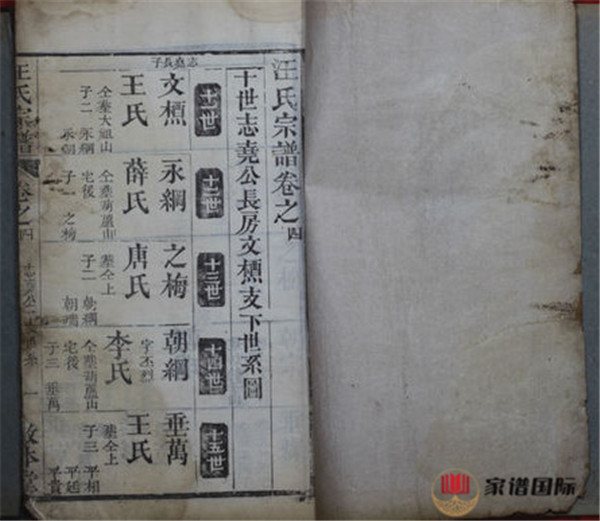 汪氏宗譜卷之四
十世志堯公長房文支下世系圖
十一世
志堯長子
文
王氏
仝葬大祖山
子二 永綱
永朝
十二世
永綱
薛氏
仝葬葫蘆山
宅後
子一 之梅
十三世
之梅
唐氏
葬仝上
子二 朝綱
朝瑞
十四世
朝綱
字丕烈
李氏
仝葬葫蘆山
宅後
子三 垂萬
十五世
垂萬
王氏
葬仝上
子三 平相
平廷
平貴
汪氏宗譜 卷之四
一 敦本堂
家谱国际